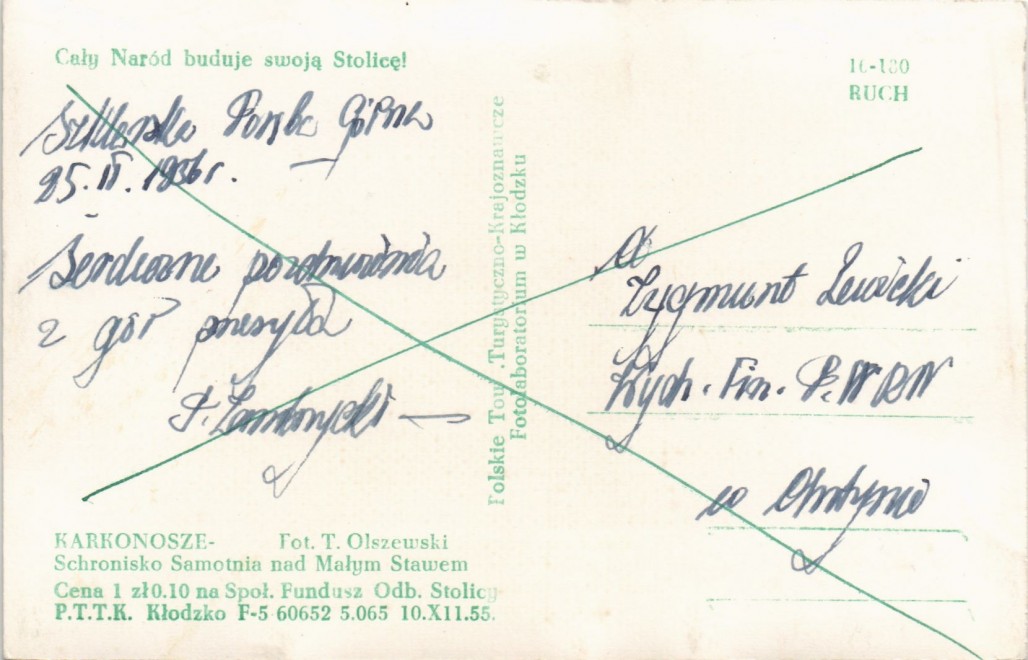 Cały Naród buduje swoją Stolicę!
16-180
RUCH
Szklarska Poręba Górna
25. II. 1956 r.
Serdeczne pozdrowienia
z gór przesyła
Ob.
Zygmunt
Wydz. Fin. P.W.R.N
w Olsztynie
Polskie Tow. Turystyczno-Krajoznawcze
Fotolaboratorium w Kłodzku
KARKONOSZE- Fot. T. Olszewski
Schronisko Samotnia nad Małym Stawem
Cena 1 zł0.10 na Społ. Fundusz Odb. Stolicy
P.T.T.K. Kłodzko F-5 60652 5.065 10.XII.55.